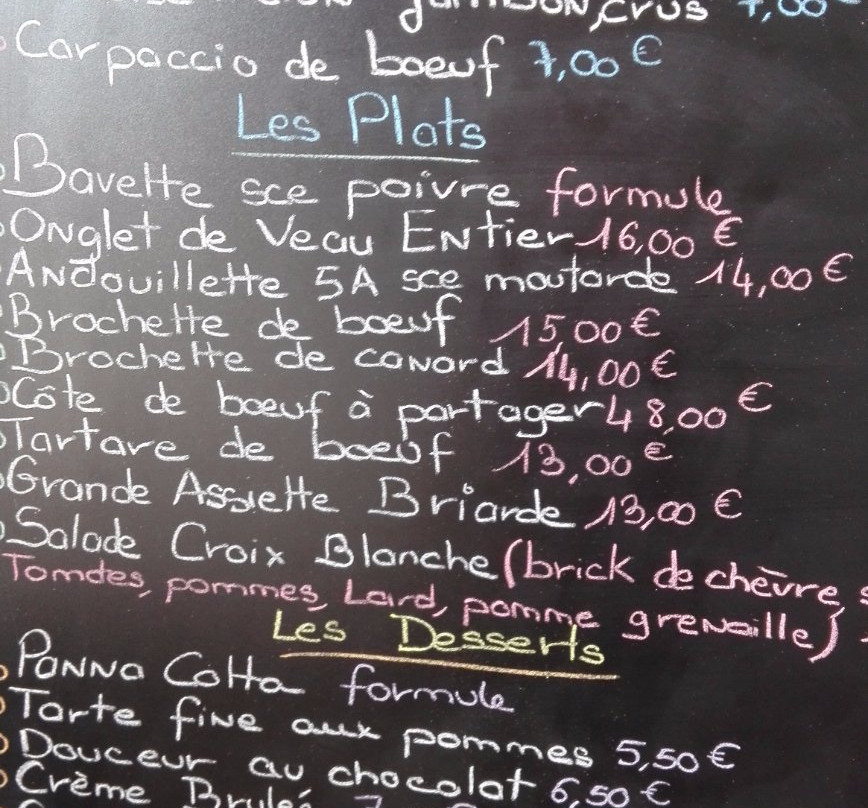 Crus 7,00
Carpaccio de boeuf 7,00 €
Les Plats
Bavette sce poivre formule
Onglet de Veau Entier 16,00 €
Andouillette 5A sce moutarde 14,00 €
Brochette de boeuf 15,00 €
Brochette de canard 14,00 €
Côte de boeuf à partager 48,00 €
Tartare de boeuf 13,00 €
Grande Assiette Briarde 13,00 €
Salade Croix Blanche (brick de chèvre,
Tomdes, pommes, Lard, pomme grenaille)
Les Desserts
Panna Cotta formule
Tarte fine aux pommes 5,50 €
Douceur au chocolat 6,50 €
Crème Brulé